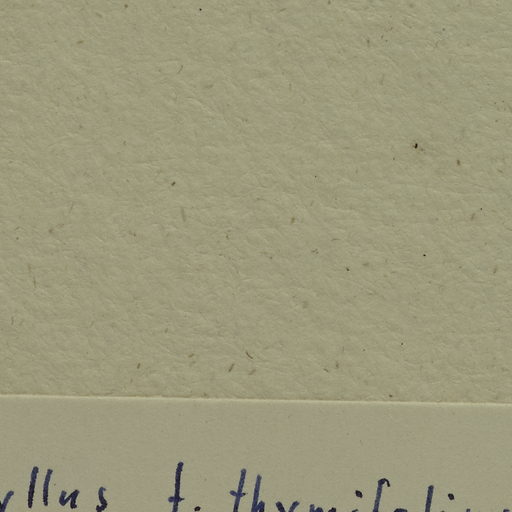 yllus f. thymifolius